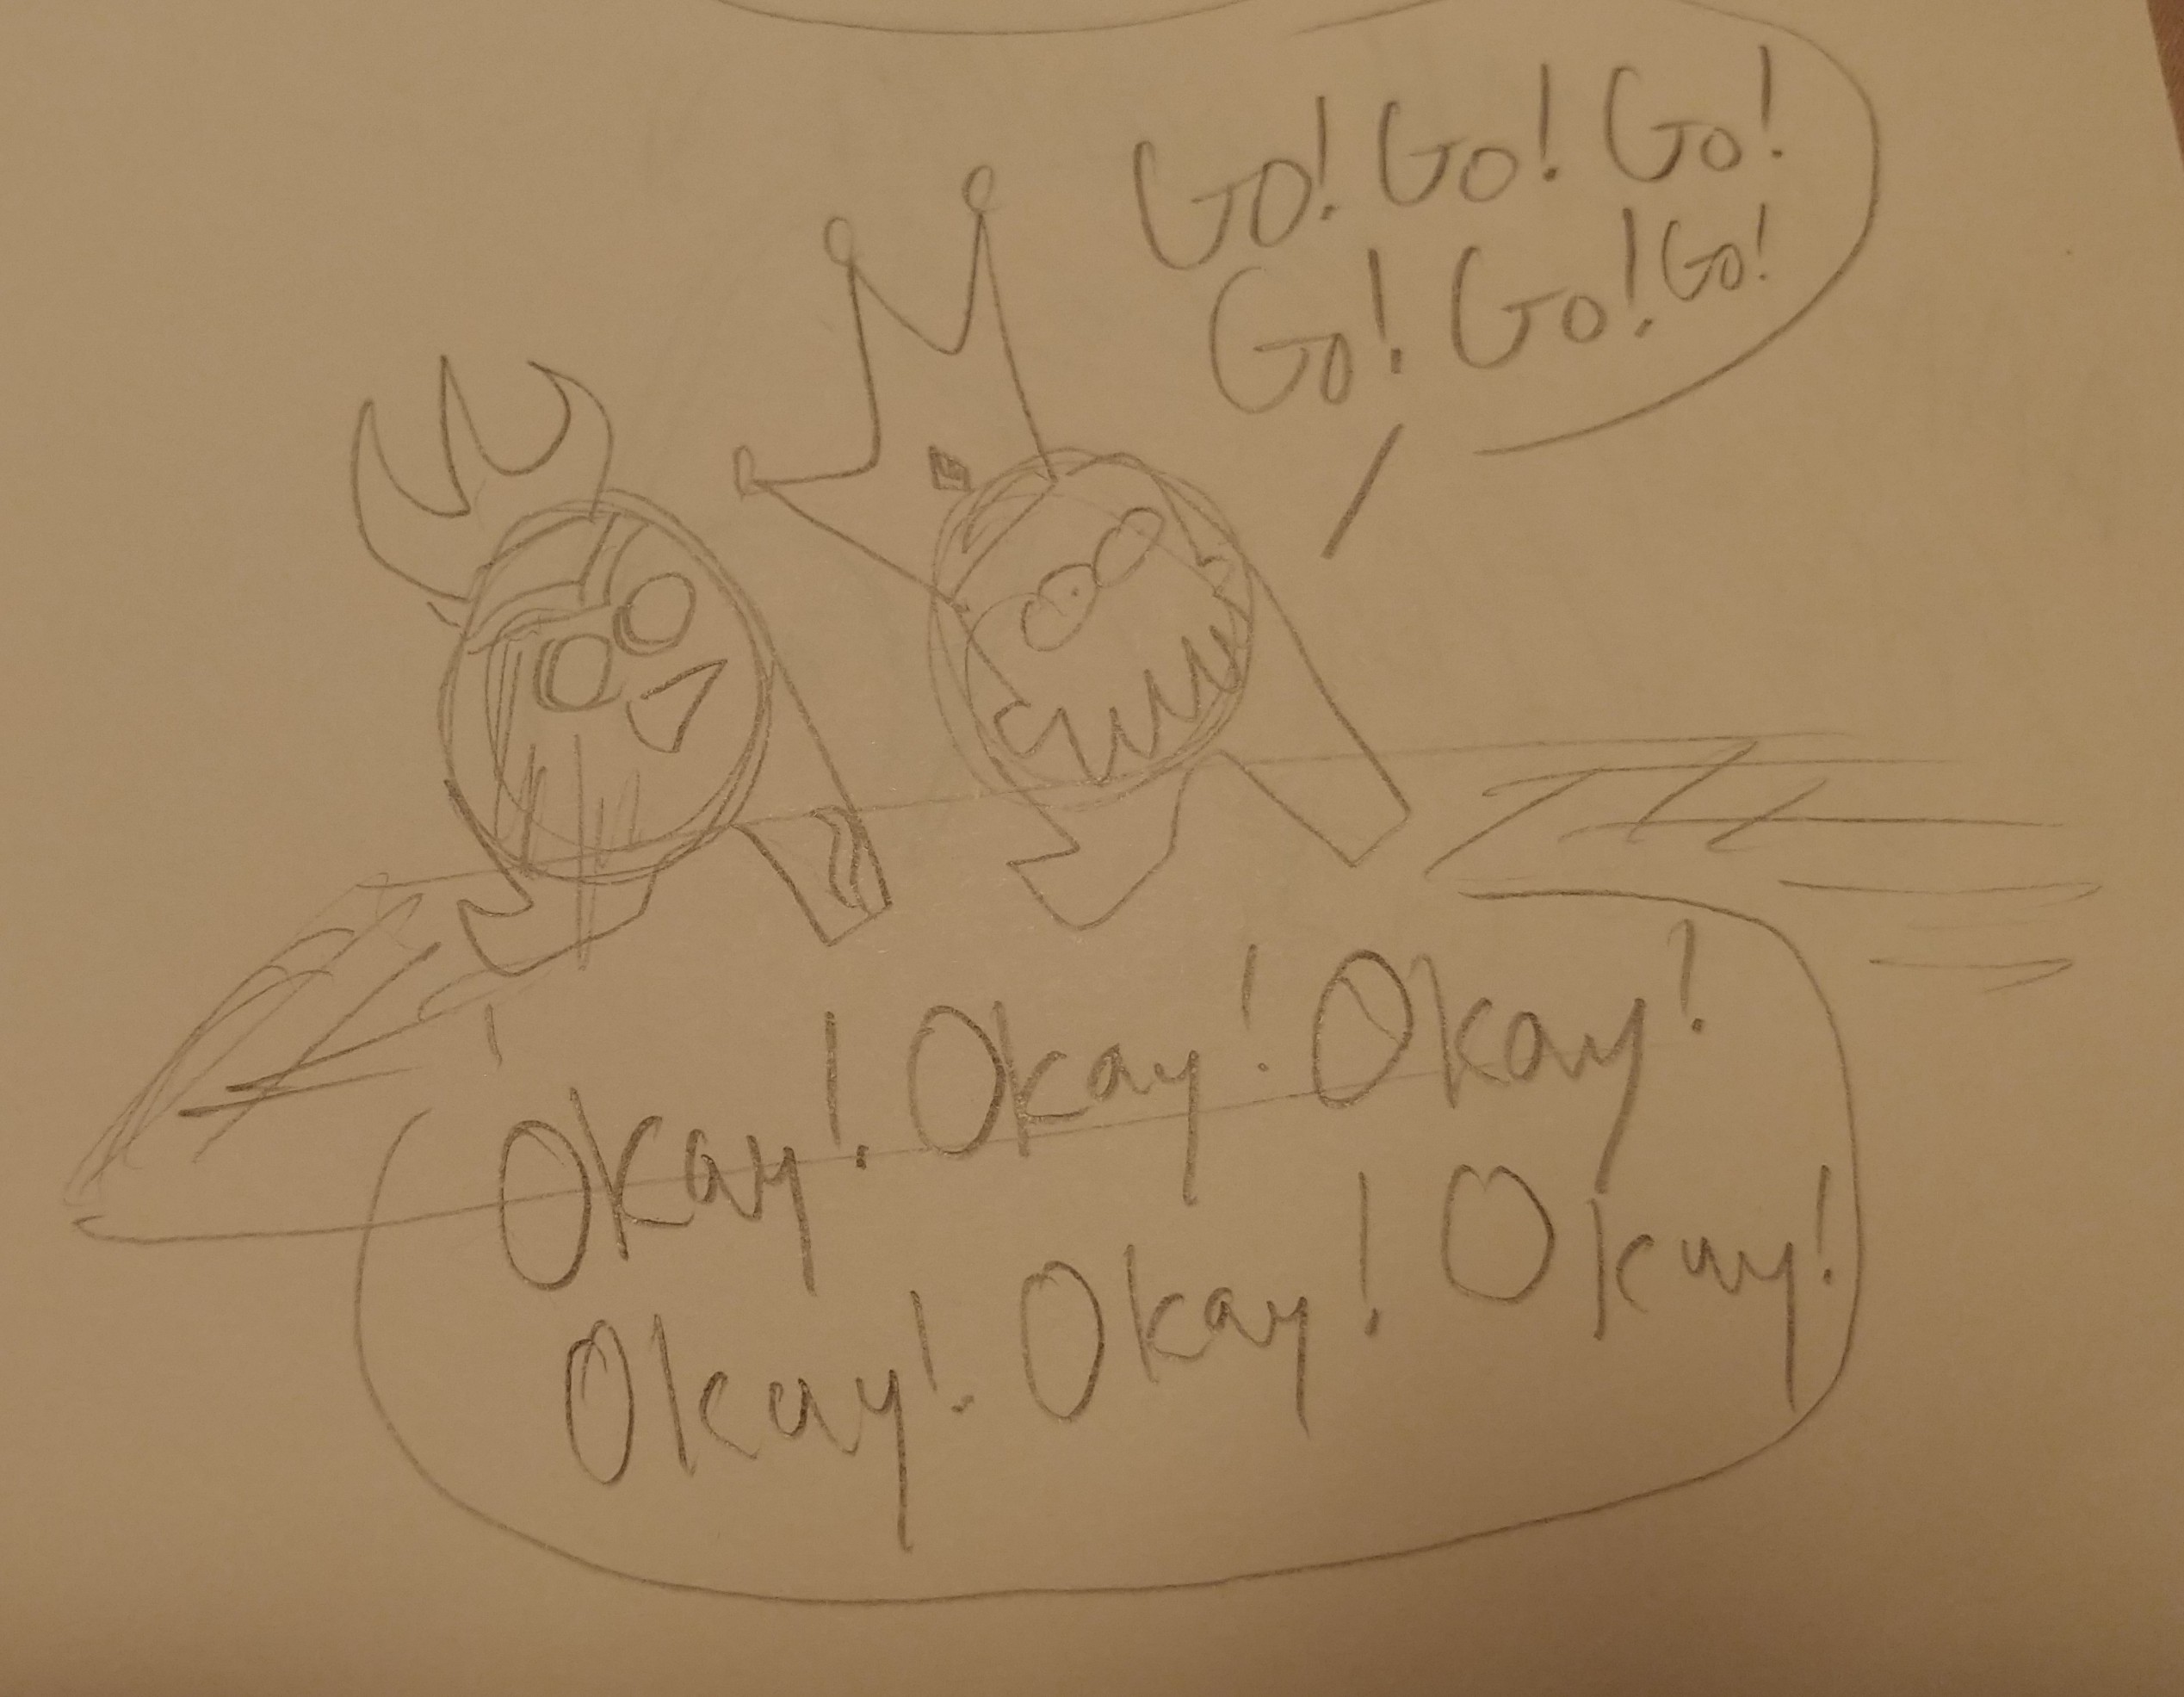 Go! Go! Go!
Go! Go! Go!
Okay! Okay! Okay!
Okay! Okay! Okay!